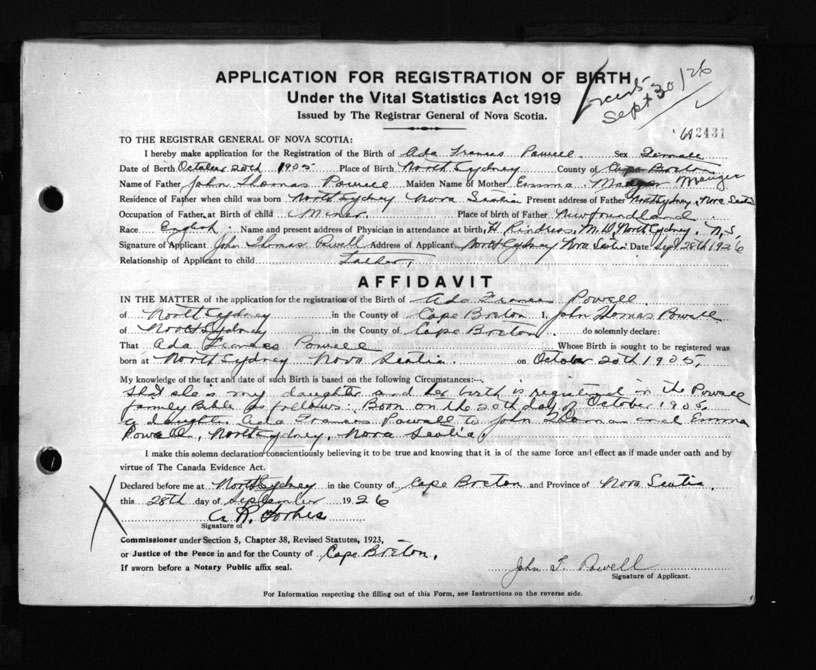 APPLICATION FOR REGISTRATION OF BIRTH
Under the Vital Statistics Act 1919
Issued by The Registrar General of Nova Scotia.
Sept 30/26
TO THE REGISTRAR GENERAL OF NOVA SCOTIA:
I hereby make application for the Registration of the Birth of Ada Frances Powell Sex Female
Date of Birth October 20th 1905 Place of Birth North Sydney County of Cape Breton
Name of Father John Thomas Powell Maiden Name of Mother Emma Mauger
Residence of Father when child was born North Sydney Nova Scotia Present address of Father North Sydney, Nova Scotia
Occupation of Father at Birth of child Miner Place of birth of Father Newfoundland
Race English Name and present address of Physician in attendance at birth, H. M.D. North Sydney, N.S.
Signature of Applicant John Thomas Powell Address of Applicant North Sydney Nova Scotia Date Sept 28th 1926
Relationship of Applicant to child Father,
AFFIDAVIT
IN THE MATTER of the application for the registration of the Birth of Ada Frances Powell.
of North Sydney in the County of Cape Breton I, John Thomas Powell
of North Sydney in the County of Cape Breton do solemnly declare:
That Ada Frances Powell Whose Birth is sought to be registered was
born at North Sydney Nova Scotia. on October 20th 1905,
My knowledge of the fact and date of such Birth is based on the following Circumstances:—
That she is my daughter and her birth is registered in the Powell
family Bible as follows: Born on the 20th day of October 1905,
a daughter Ada Frances Powell to John Thomas and Emma
Powell, North Sydney, Nova Scotia,
I make this solemn declaration conscientiously believing it to be true and knowing that it is of the same force and effect as if made under oath and by
virtue of The Canada Evidence Act.
Declared before me at North Sydney in the County of Cape Breton and Province of Nova Scotia.
this 28th day of September 1926
Forbes
Signature of
Commissioner under Section 5, Chapter 38, Revised Statutes, 1923,
or Justice of the Peace in and for the County of Cape Breton.
If sworn before a Notary Public affix seal.
John T. Powell
Signature of Applicant.
For Information respecting the filling out of this Form, see Instructions on the reverse side.